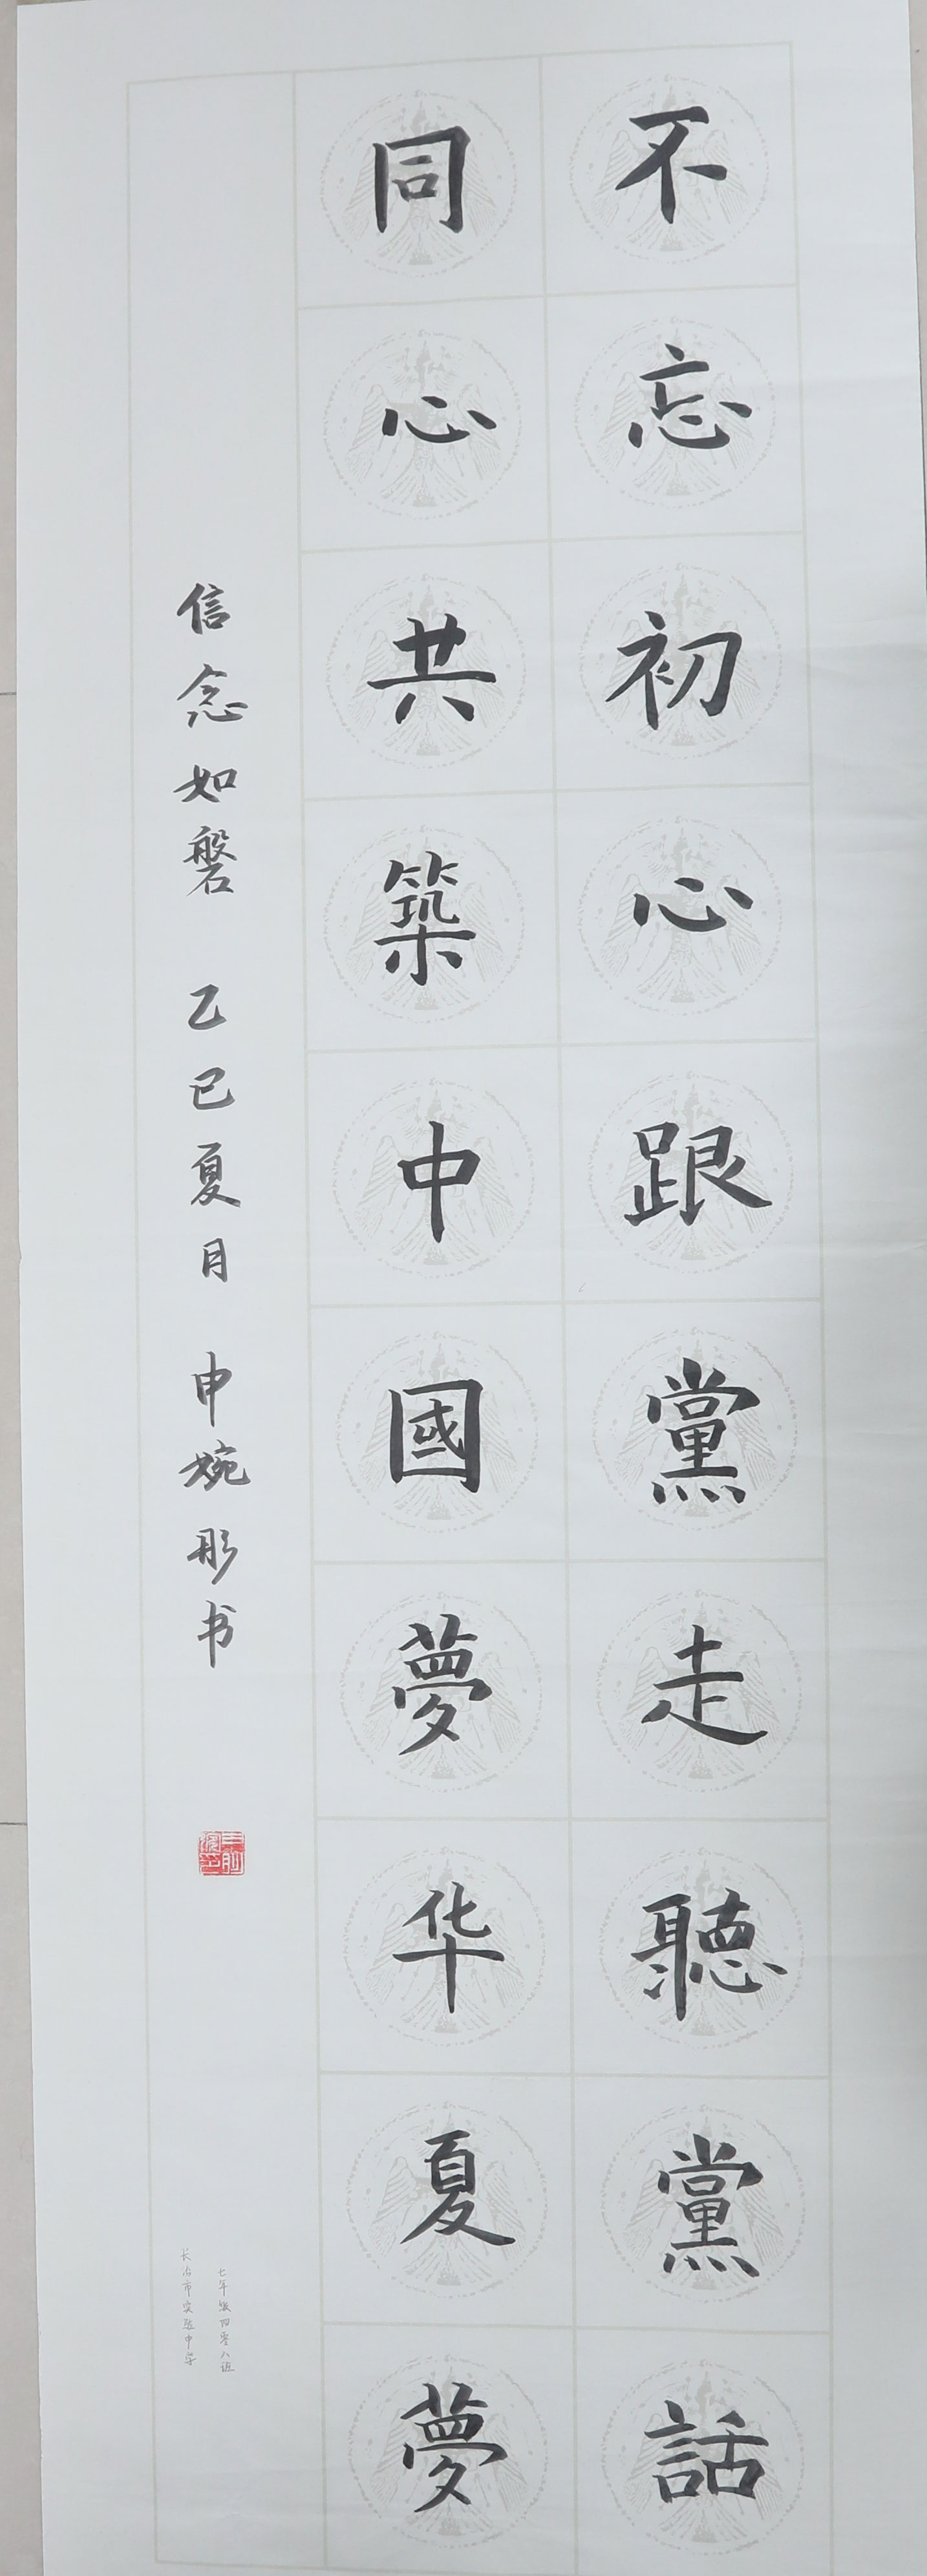 不忘初心跟黨走聽黨話
同心共築中國夢华夏夢
信念如磐 乙巳夏月 申婉彤书
七年级四零八班
长治市实验中学